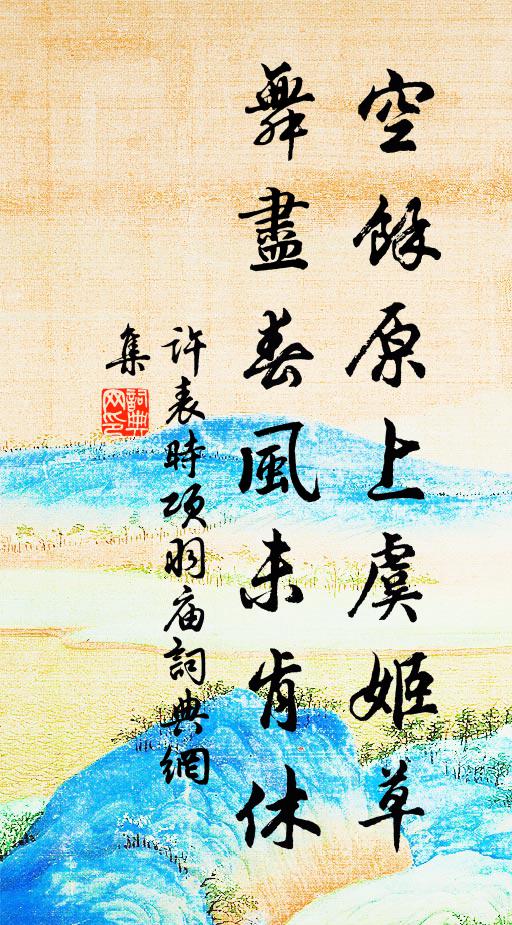 空餘原上虞姬草
舞盡春風未肯休
許表時項羽廟詞典網
集
詞典
网印